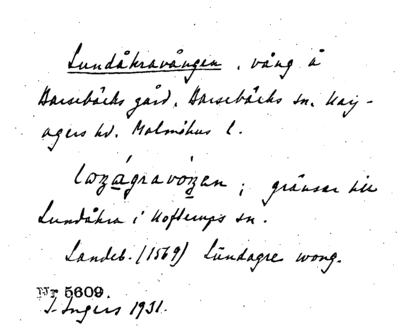 Lundåkravången, vång å
Barsebäcks gård, Barsebäcks sn. Harj-
agers hd. Malmöhus l.
lωŋágravóŋen; gränsar till
Lundåkra i Hofterups sn.
Landeb. (1569) Lündagre wong.
Nr 5609.
I. Ingers 1931.